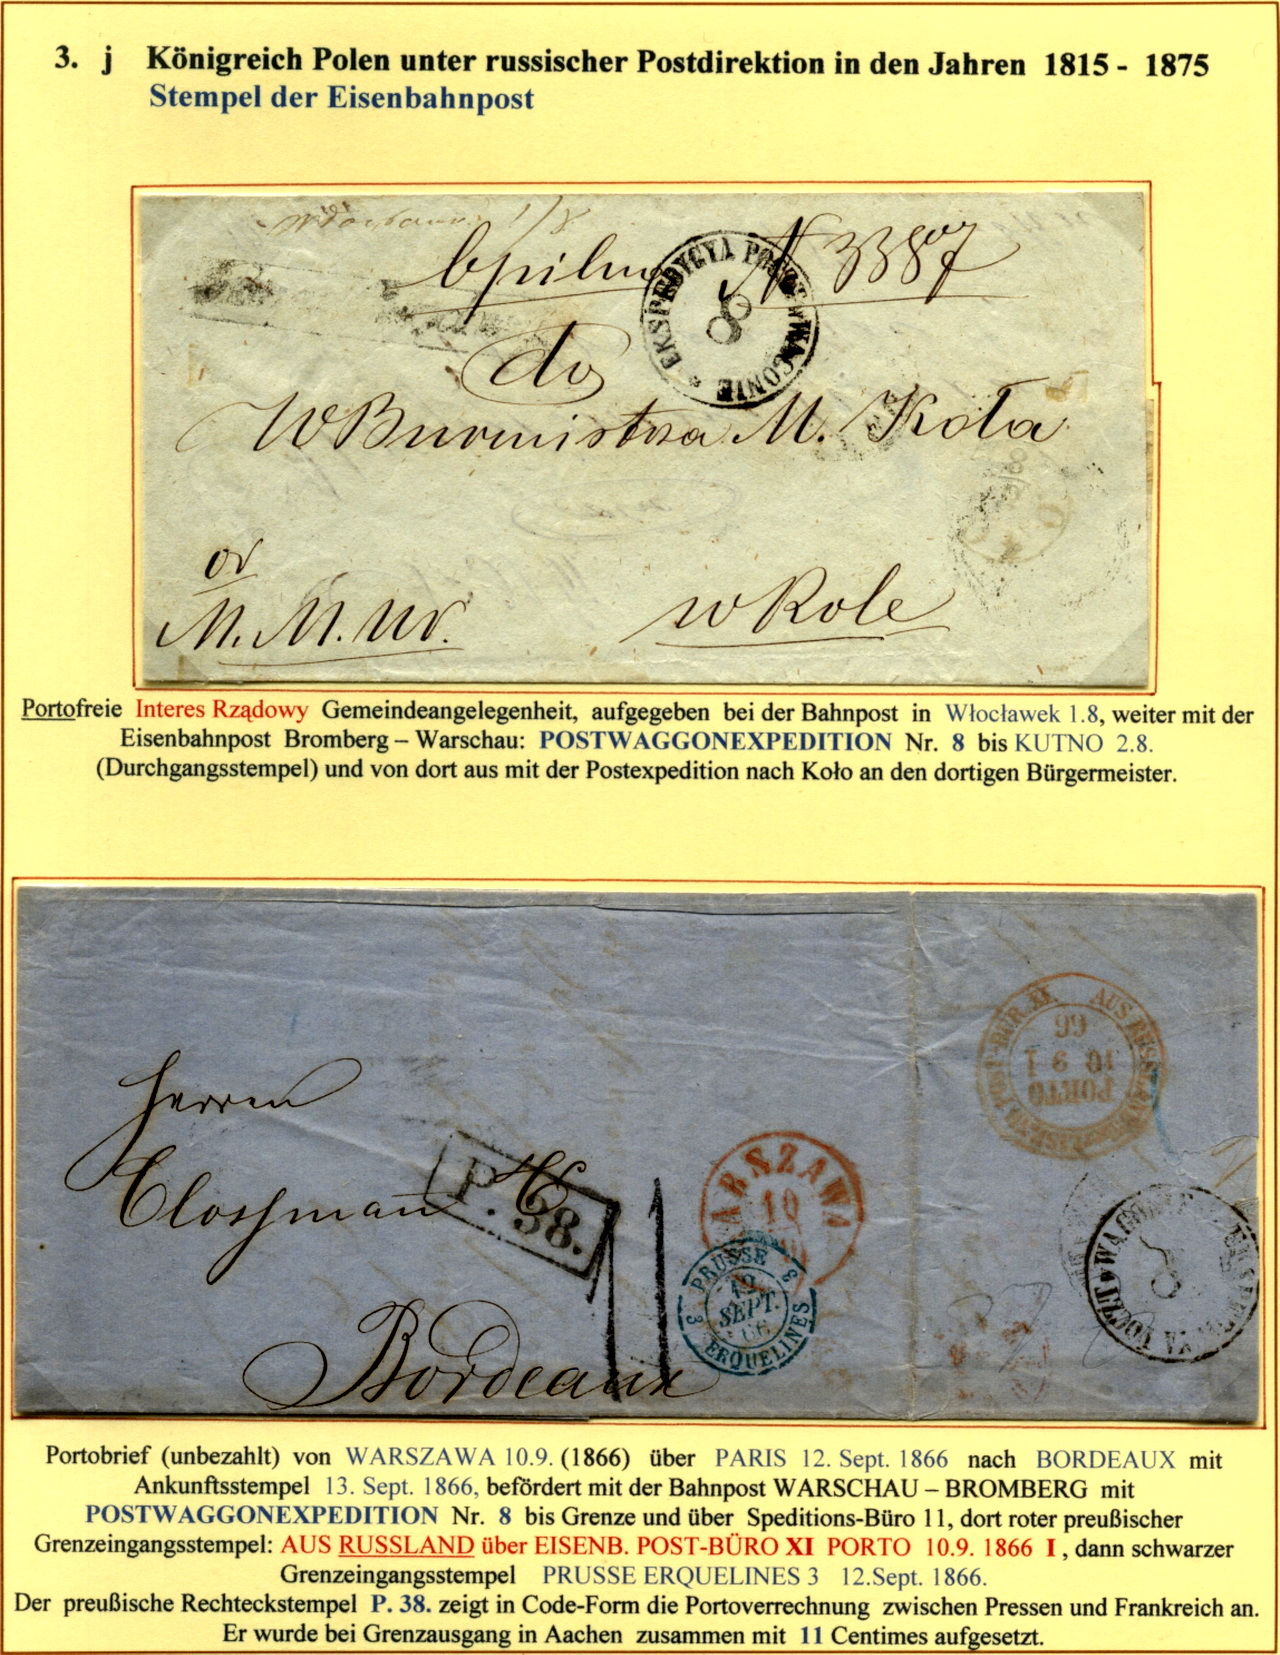 3. j Königreich Polen unter russischer Postdirektion in den Jahren 1815 - 1875
Stempel der Eisenbahnpost
N 3387
EKSPEDYCYA POCZT w WAGONIE *
8
do
W Burmistrza M. Koła
od
M. M. Wr.
w Kole
Portofreie Interes Rządowy Gemeindeangelegenheit, aufgegeben bei der Bahnpost in Włocławek 1.8, weiter mit der
Eisenbahnpost Bromberg – Warschau: POSTWAGGONEXPEDITION Nr. 8 bis KUTNO 2.8.
(Durchgangsstempel) und von dort aus mit der Postexpedition nach Koło an den dortigen Bürgermeister.
AUS RUSSLAND
POST-BÜR. XI.
66
10 9 I
PORTO
Herrn
P. 38.
WARSZAWA
10
11
PRUSSE
3 3
12
SEPT.
66
ERQUELINES
w WAGONIE
8
Bordeaux
Portobrief (unbezahlt) von WARSZAWA 10.9. (1866) über PARIS 12. Sept. 1866 nach BORDEAUX mit
Ankunftsstempel 13. Sept. 1866, befördert mit der Bahnpost WARSCHAU – BROMBERG mit
POSTWAGGONEXPEDITION Nr. 8 bis Grenze und über Speditions-Büro 11, dort roter preußischer
Grenzeingangsstempel: AUS RUSSLAND über EISENB. POST-BÜRO XI PORTO 10.9. 1866 I , dann schwarzer
Grenzeingangsstempel PRUSSE ERQUELINES 3 12.Sept. 1866.
Der preußische Rechteckstempel P. 38. zeigt in Code-Form die Portoverrechnung zwischen Pressen und Frankreich an.
Er wurde bei Grenzausgang in Aachen zusammen mit 11 Centimes aufgesetzt.